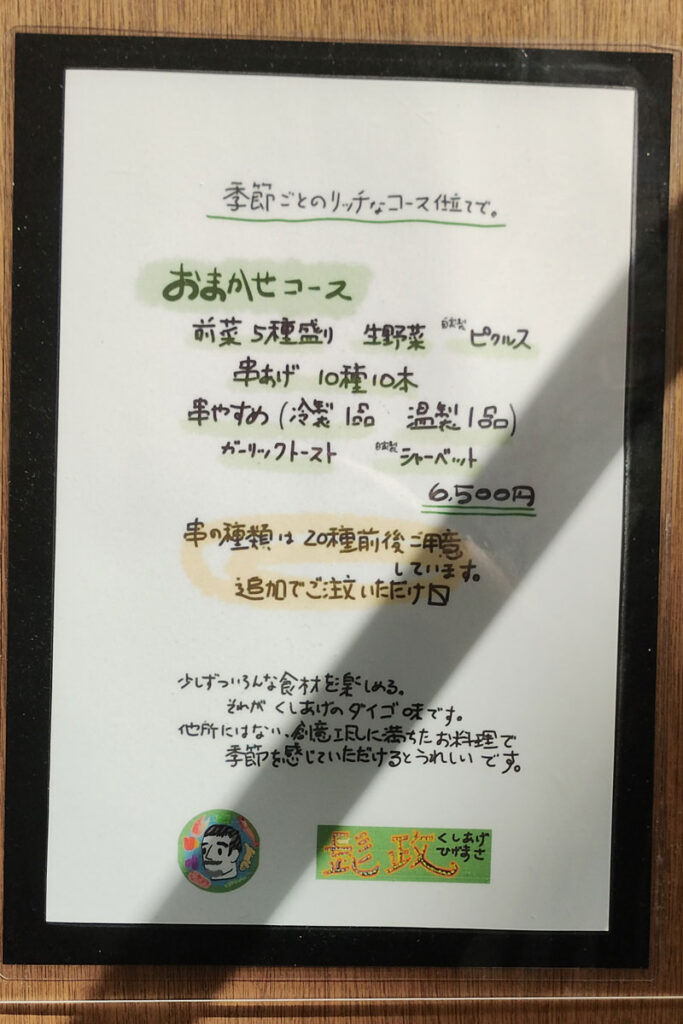 季節ごとのリッチなコース仕立てで。
おまかせコース
前菜5種盛り 生野菜 自家製ピクルス
串あげ 10種10本
串やすめ(冷製1品 温製1品)
ガーリックトースト 自家製シャーベット
6,500円
串の種類は20種前後ご用意
しています。
追加でご注文いただけ〼
少しずついろんな食材を楽しめる。
それが くしあげのダイゴ味です。
他所にはない、創意工夫に満ちたお料理で
季節を感じていただけるとうれしいです。
髭政 くしあげ
ひげまさ